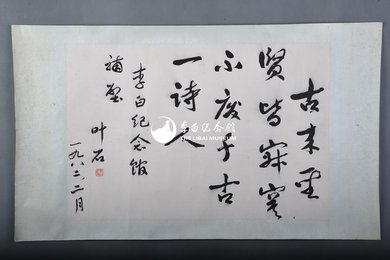 古来圣
贤皆寂寞
不废千古
一詩人
李白纪念馆
補壁
叶石
一九八二.二月
李白纪念馆
THE LIBAI MUSEUM